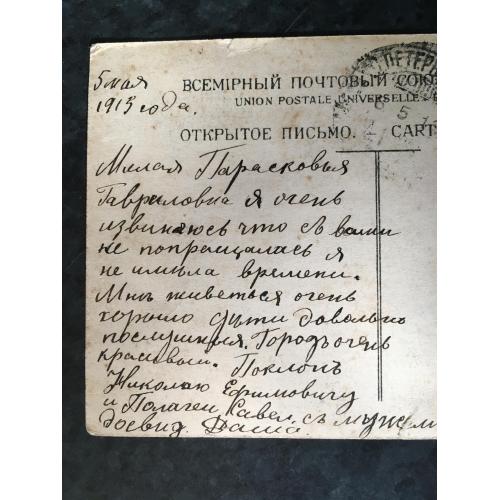 5 мая
1913 года.
ВСЕМІРНЫЙ ПОЧТОВЫЙ СОЮ
UNION POSTALE UNIVERSELLE
ОТКРЫТОЕ ПИСЬМО. — CART
ПЕТЕР
5
Милая Парасковья
Гавриловна я очень
извиняюсь что съ вами
не попращалась я
не имѣла времени.
Мнѣ живеться очень
хорошо дѣти довольно
послушныя. Городъ очень
красивый. Поклонъ
Николаю Ефимовичу
и Палагеи Савел. съ мужем
досвид. Даша.